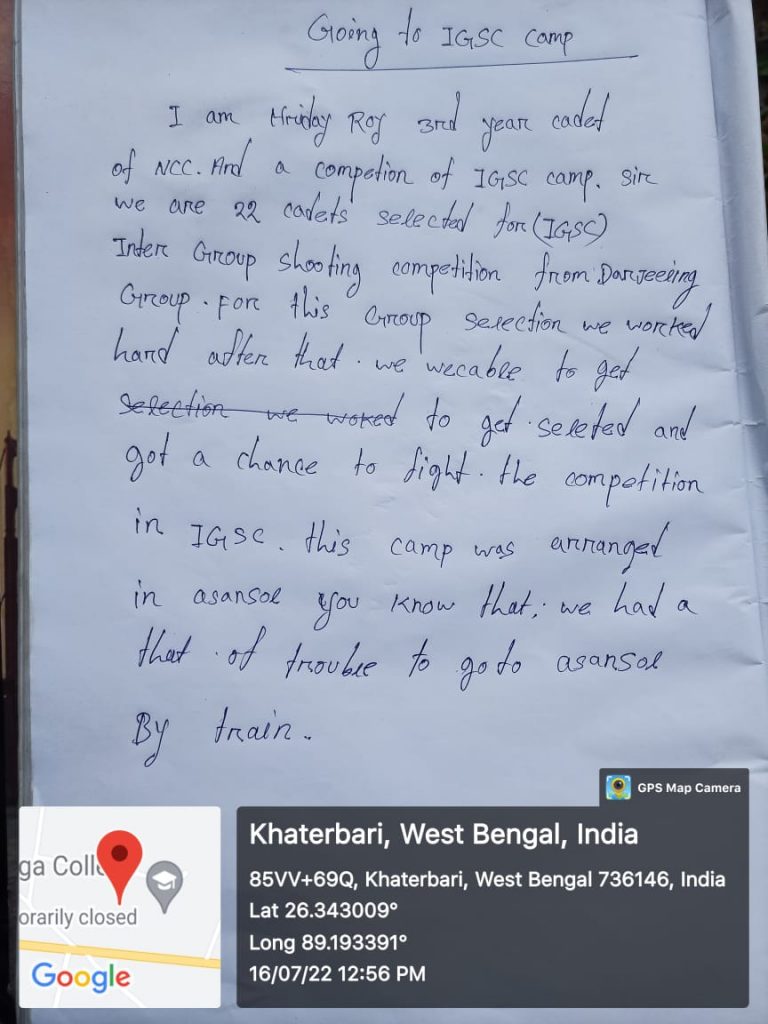 Going to IGSC camp
I am Hriday Roy 3rd year cadet
of NCC. And a competion of IGSC camp. Sir
we are 22 cadets selected for (IGSC)
Inter Group shooting competition from Darjeeling
Group. For this Group selection we worked
hard after that. we wecable to get
selection we woked to get seleted and
got a chance to fight. the competition
in IGSC. this camp was arranged
in asansol you know that, we had a
that of trouble to go to asansol
By train.
GPS Map Camera
Khaterbari, West Bengal, India
85VV+69Q, Khaterbari, West Bengal 736146, India
Lat 26.343009°
Long 89.193391°
16/07/22 12:56 PM
ga Coll
orarily closed
Google